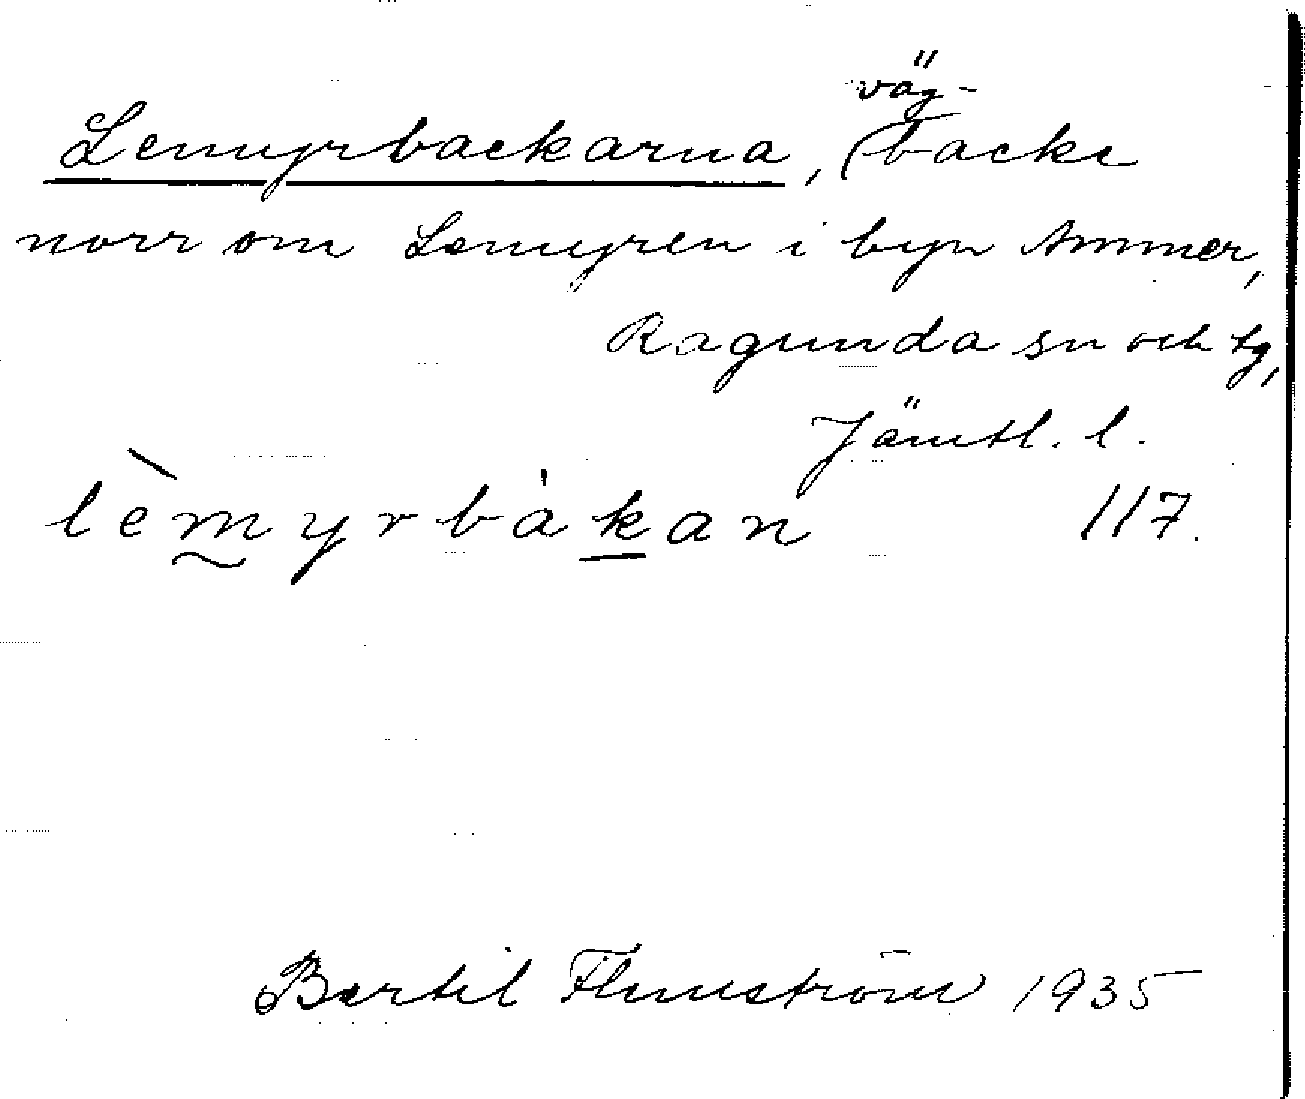 Lemyrbackarna, väg-
backe
norr om Lemyren i byn Ammer,
Ragunda sn och tg,
Jämtl. l.
lèmyrbàkan 117.
Bertil Flemström 1935